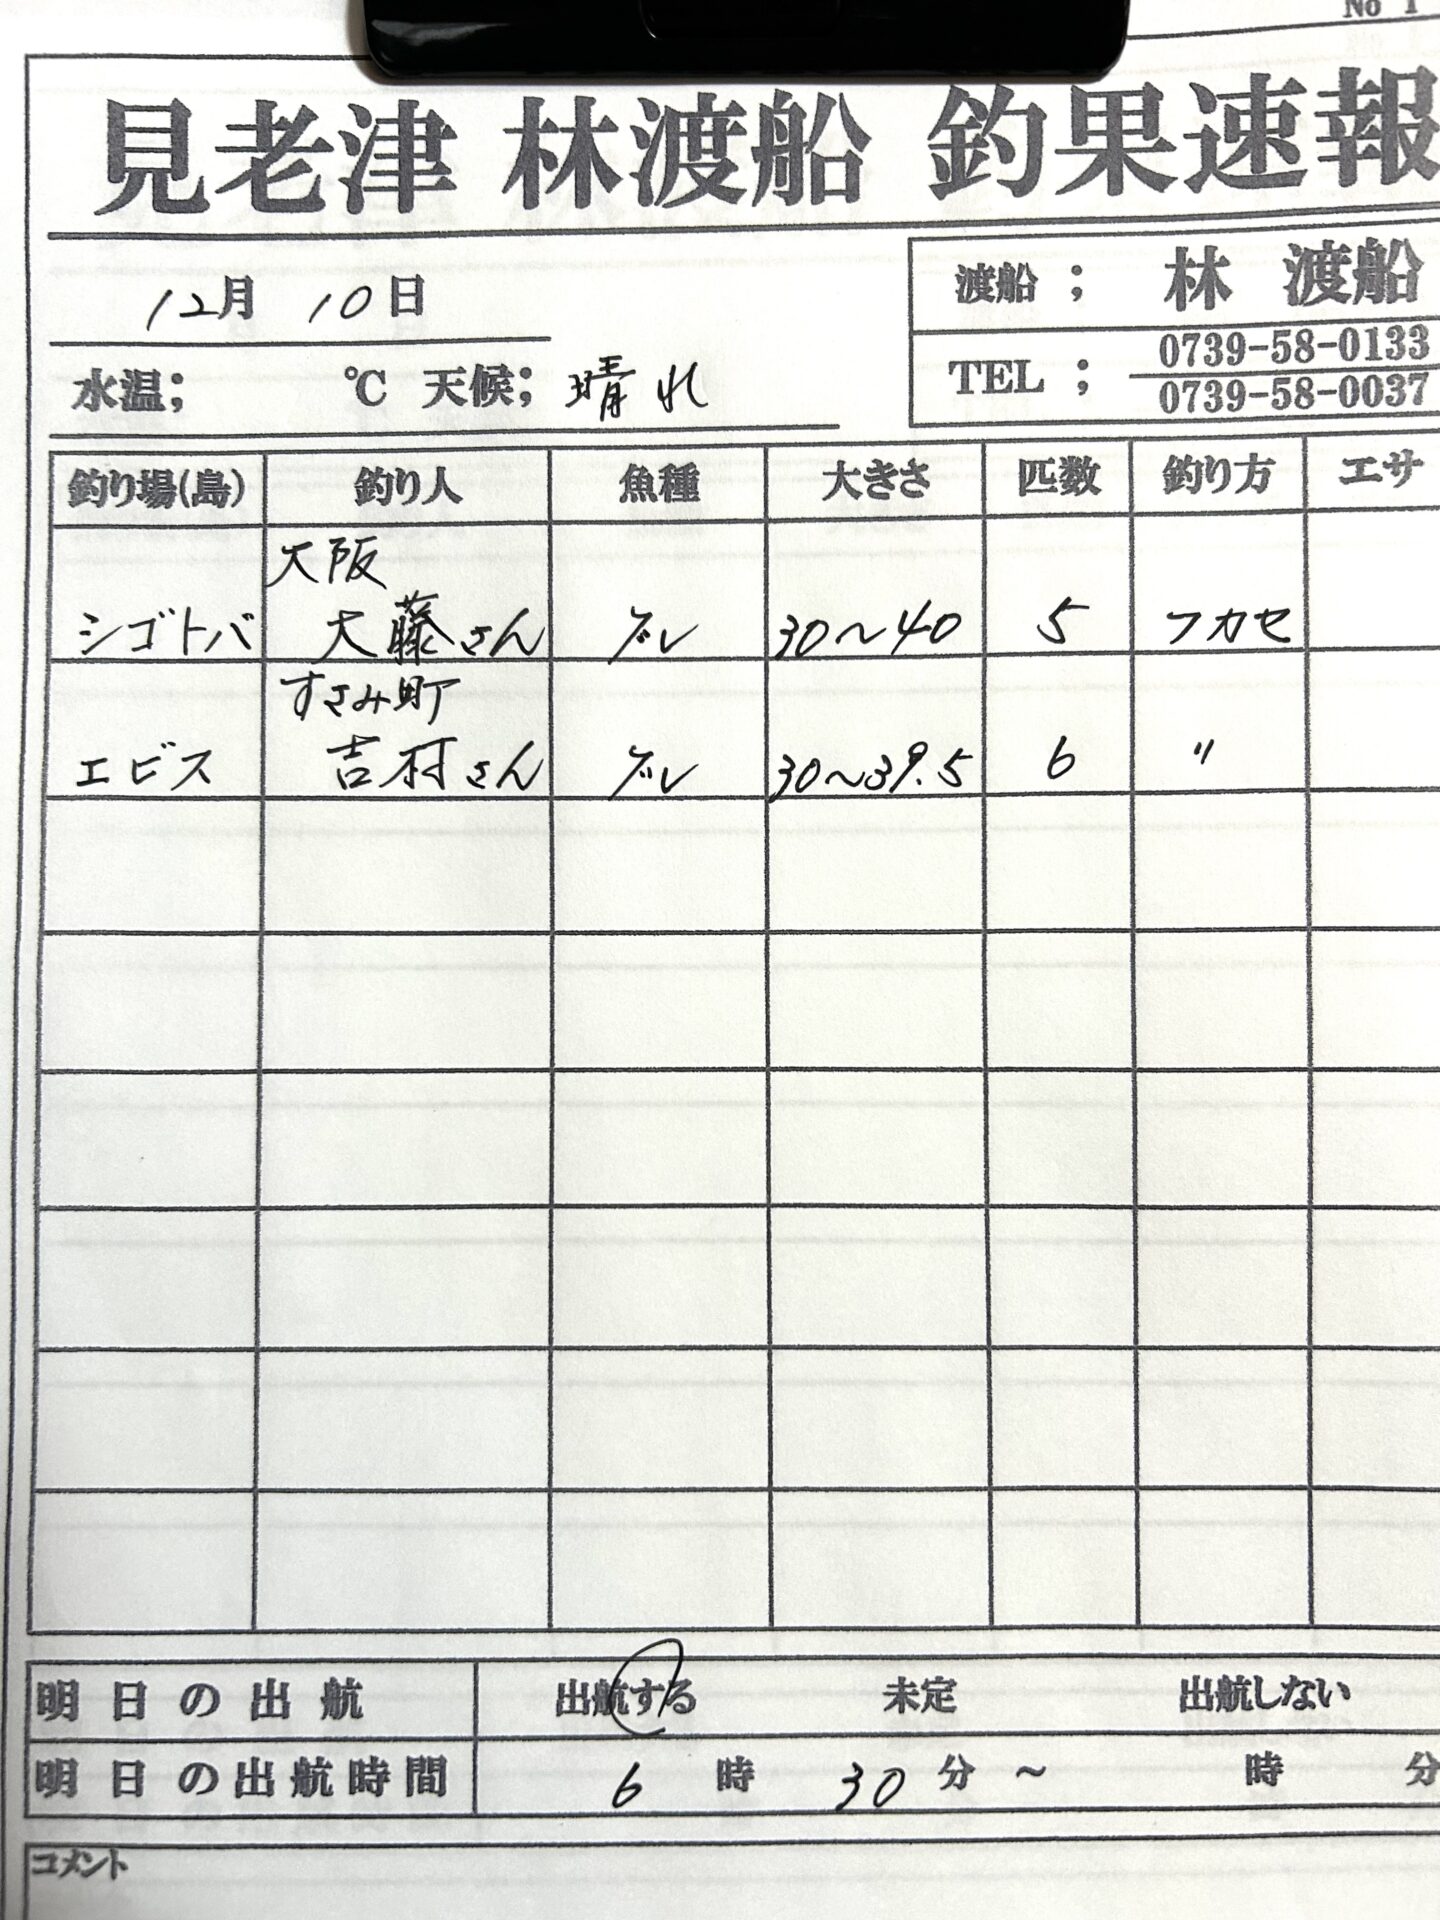 No 1
見老津 林渡船 釣果速報
12月 10日
渡船 ; 林 渡船
水温; ℃ 天候; 晴れ
TEL ; 0739-58-0133
0739-58-0037
釣り場(島) 釣り人 魚種 大きさ 匹数 釣り方 エサ
大阪
シゴトバ 大藤さん グレ 30～40 5 フカセ
すさみ町
エビス 吉村さん グレ 30～39.5 6 〃
明日の出航 出航する 未定 出航しない
明日の出航時間 6 時 30 分 ～ 時 分
コメント